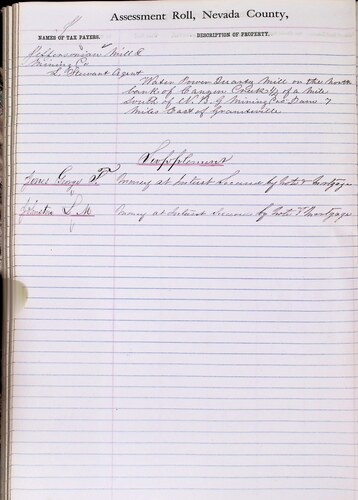 Assessment Roll, Nevada County,
NAMES OF TAX PAYERS.
DESCRIPTION OF PROPERTY.
Jeffersonian Mill &
Mining Co
S. Stewart Agent
Water Power Quartz Mill on the North
bank of Canyon Creek ½ of a Mile
South of N. B. G Mining Cos Dam 7
Miles East of Graniteville
Supplement
Jones George F. Money at Interest Secured by Note & Mortgage
Johnston S. M Money at Interest Secured by Note & Mortgage